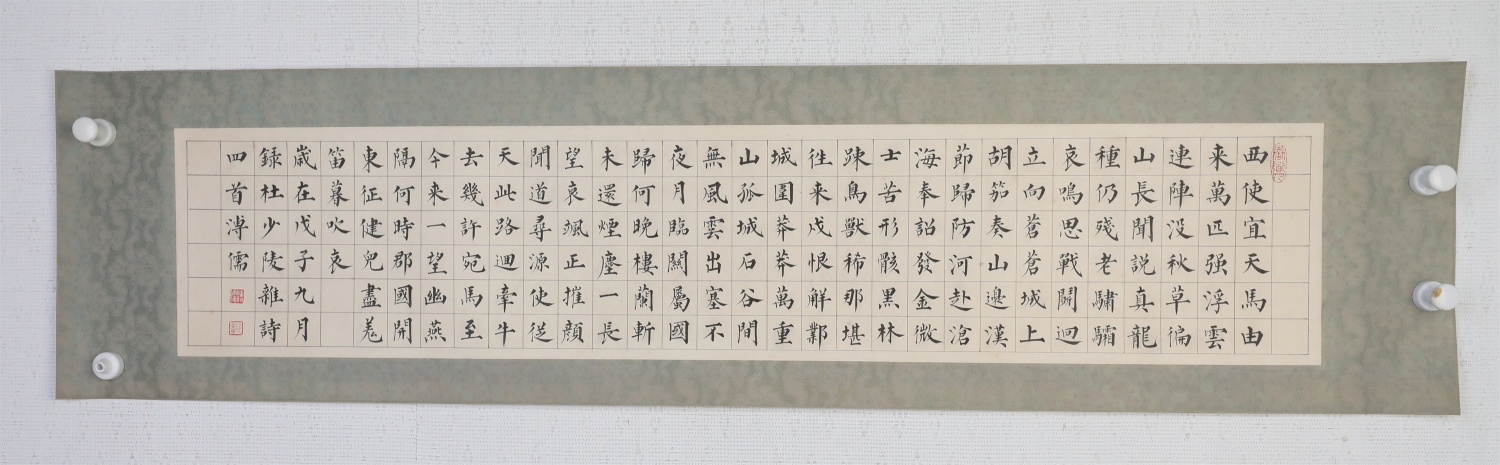 西使宜天馬由
来萬匹强浮雲
連陣没秋草徧
山長聞説真龍
種仍殘老驌驦
哀鳴思戰鬭迥
立向蒼蒼城上
胡笳奏山邊漢
節歸防河赴滄
海奉詔發金微
士苦形骸黑林
踈鳥獸稀那堪
徃来戍恨解鄴
城圍莽莽萬重
山孤城石谷間
無風雲出塞不
夜月臨關屬國
歸何晚樓蘭斬
未還煙塵一長
望哀颯正摧顏
聞道尋源使從
天此路迴牽牛
去幾許宛馬至
今来一望幽燕
隔何時郡國開
東征健兒盡羌
笛暮吹哀
歲在戊子九月
録杜少陵雜詩
四首溥儒